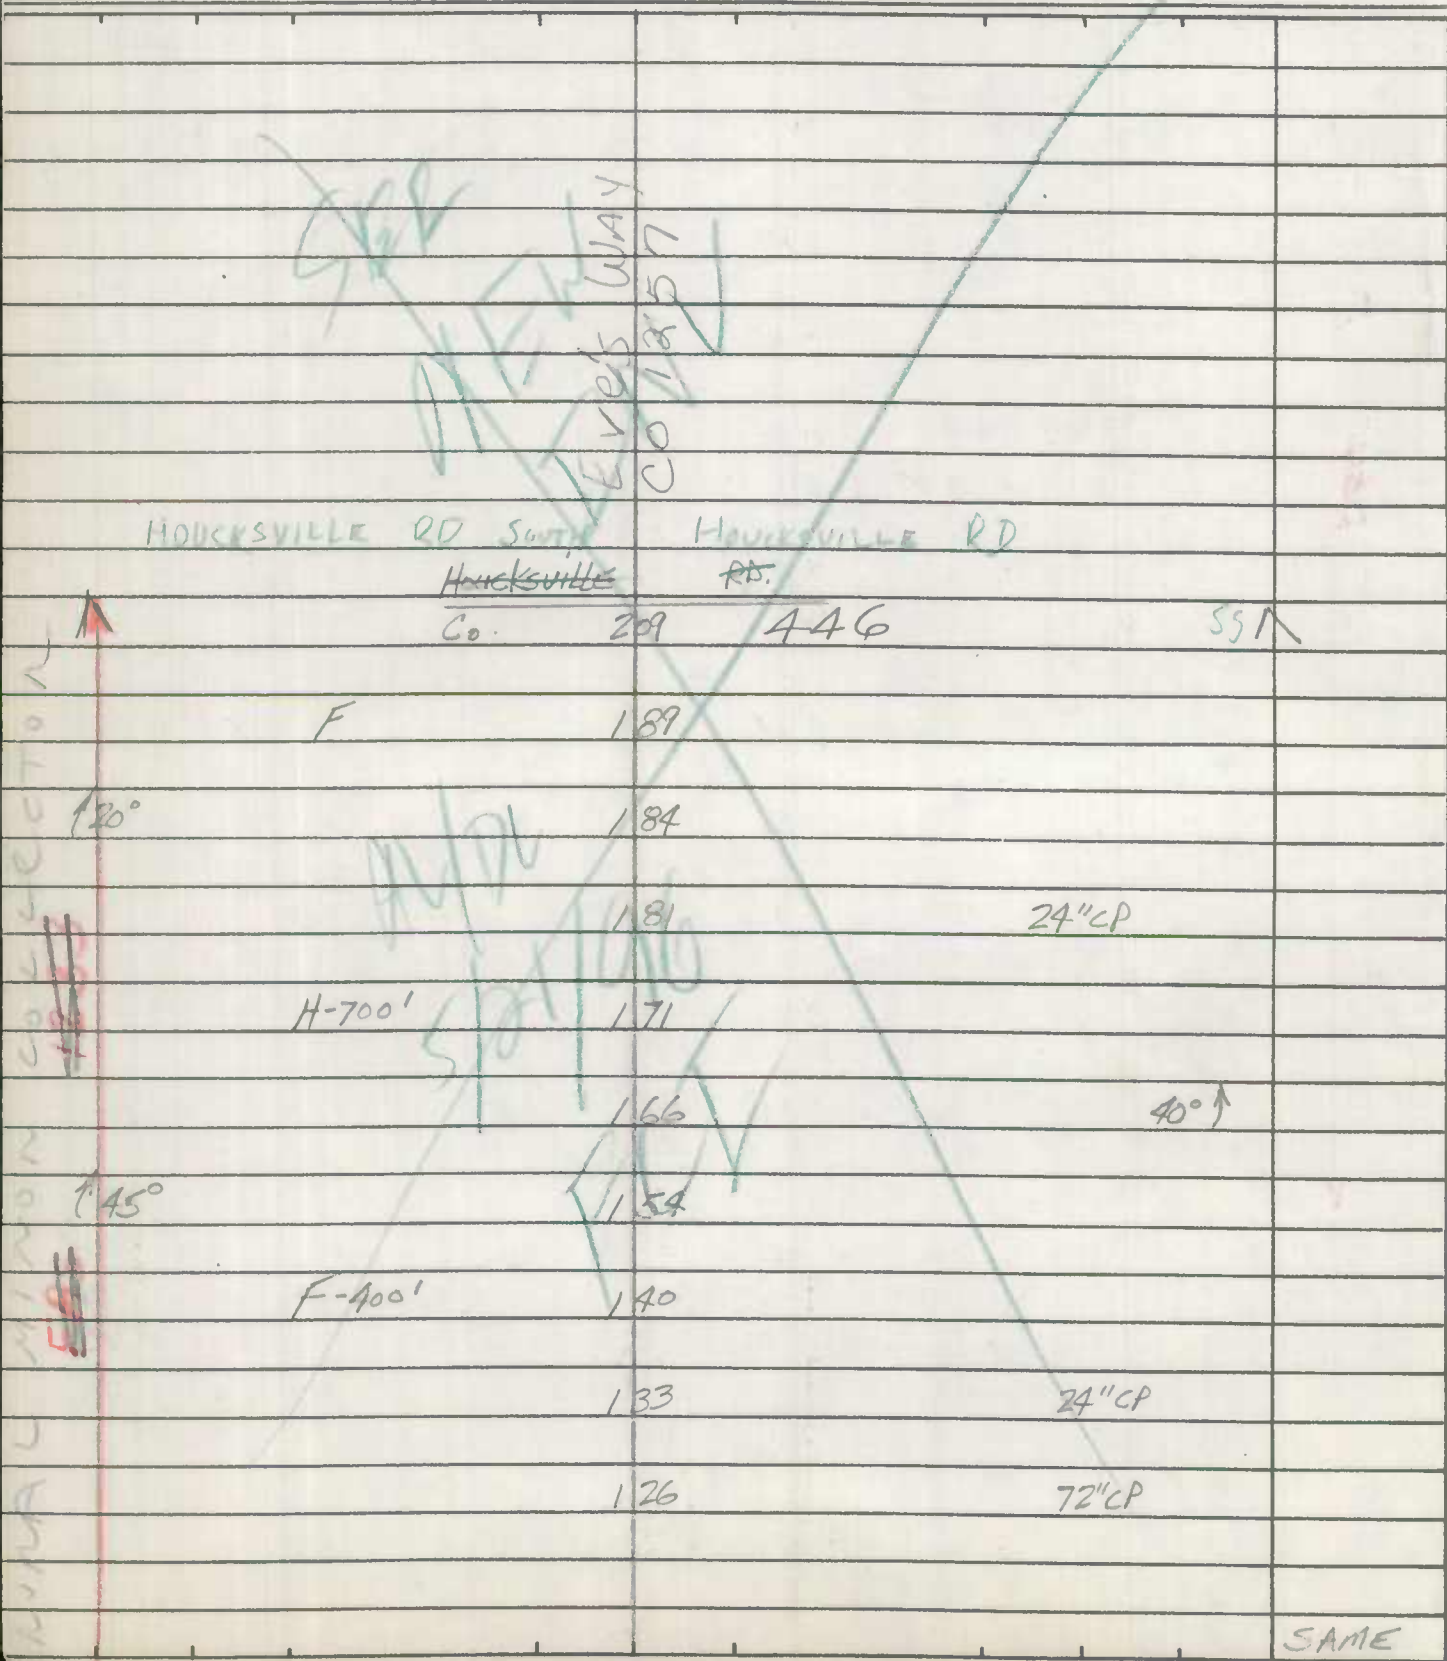 SEE
NEW
Eve's WAY
CO 1257
HOUCKSVILLE RD SOUTH HOUCKSVILLE RD
Houcksville RD.
Co. 209 446 SG
F 189
20° 184
181 24"CP
H-700' 171
166 40°
45° 154
F-400' 140
133 24"CP
126 72"CP
RURAL MINOR COLLECTOR
SAME